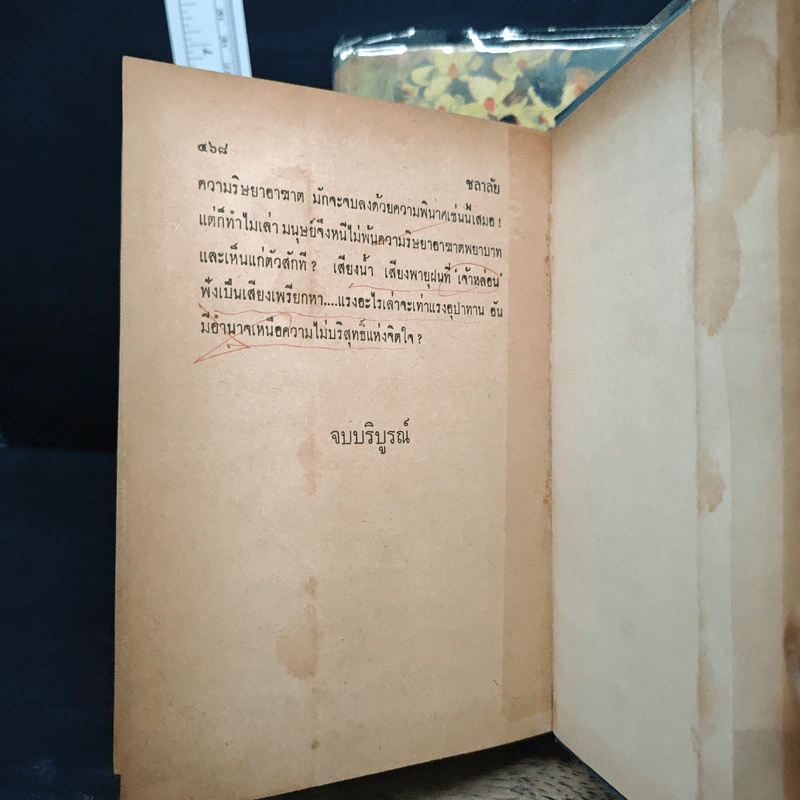 ๔๖๘
ชลาลัย
ความริษยาอาฆาต มักจะจบลงด้วยความพินาศเช่นนี้เสมอ !
แต่ก็ทำไมเล่า มนุษย์จึงหนีไม่พ้นความริษยาอาฆาตพยาบาท
และเห็นแก่ตัวสักที ? เสียงน้ำ เสียงพายุฝนที่ 'เจ้าหล่อน'
ฟังเป็นเสียงเพรียกหา....แรงอะไรเล่าจะเท่าแรงอุปาทาน อัน
มีอำนาจเหนือความไม่บริสุทธิ์แห่งจิตใจ ?
จบบริบูรณ์